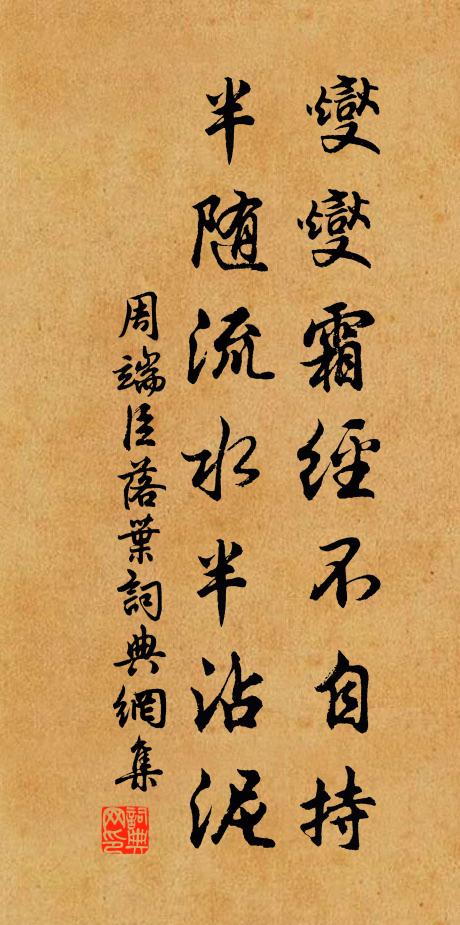 燮燮霜經不自持
半随流水半沾泥
周端臣落葉詞典網集
詞典网印